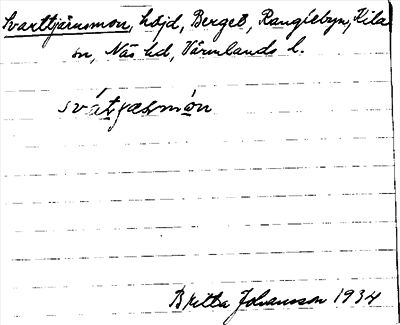 Svarttjärnsmon, höjd, Berget, Ranglebyn, Kila
sn, Näs hd, Värmlands l.
svát̲jæsmó̲n
Britta Johansson 1934